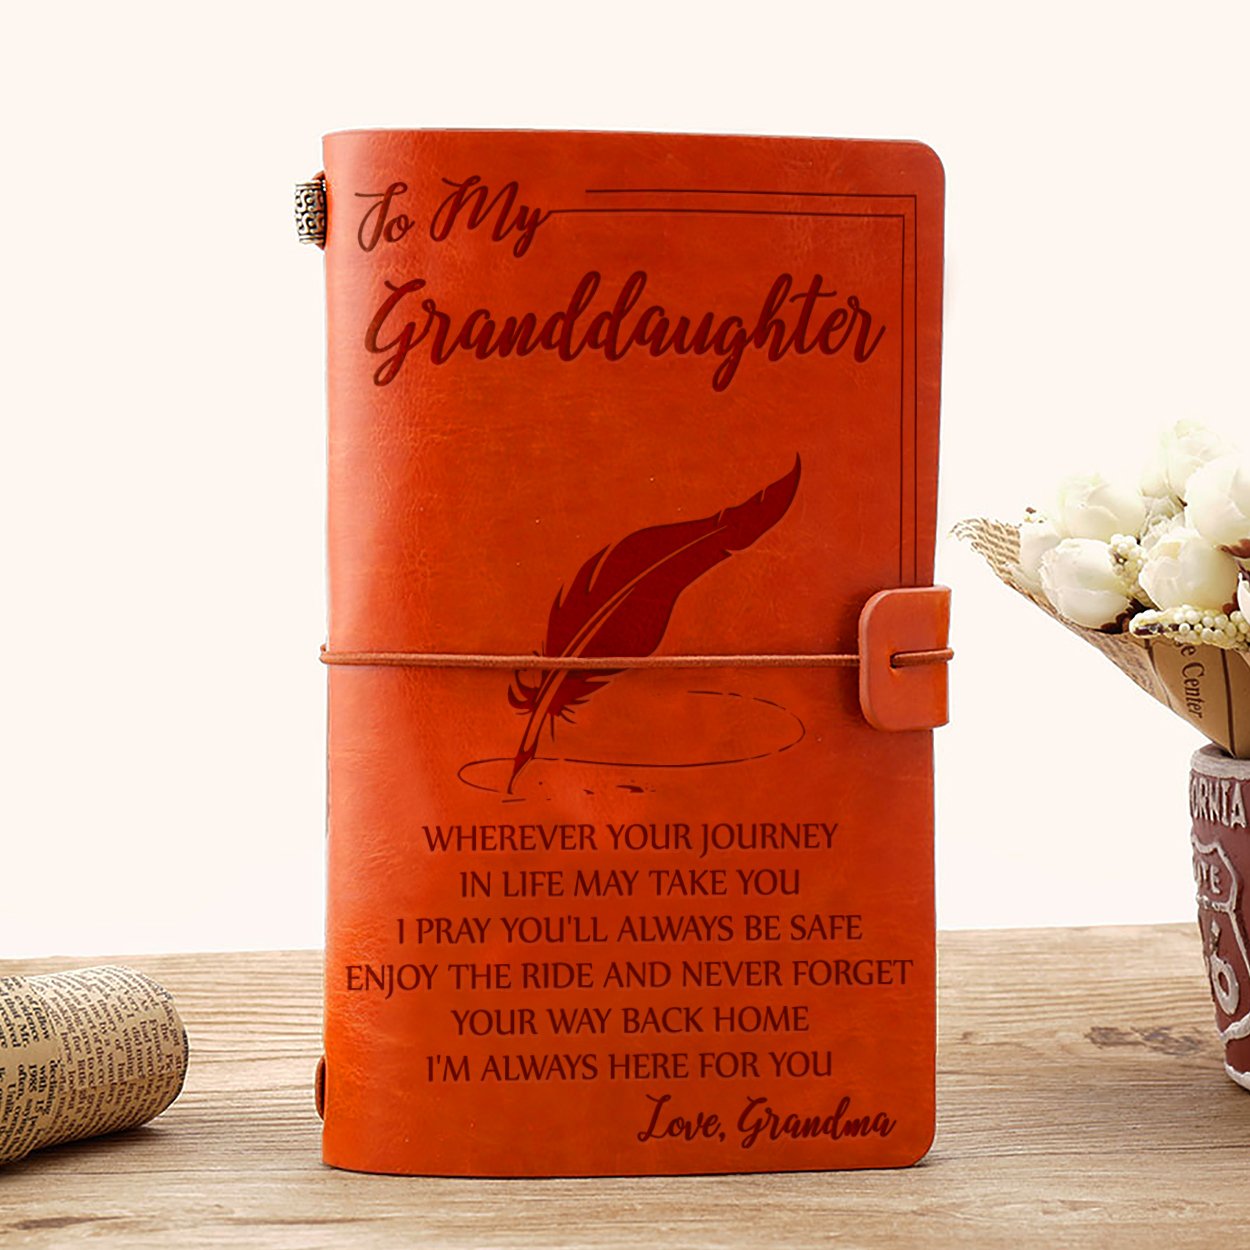 To My
Granddaughter
WHEREVER YOUR JOURNEY
IN LIFE MAY TAKE YOU
I PRAY YOU'LL ALWAYS BE SAFE
ENJOY THE RIDE AND NEVER FORGET
YOUR WAY BACK HOME
I'M ALWAYS HERE FOR YOU
Love, Grandma
Center